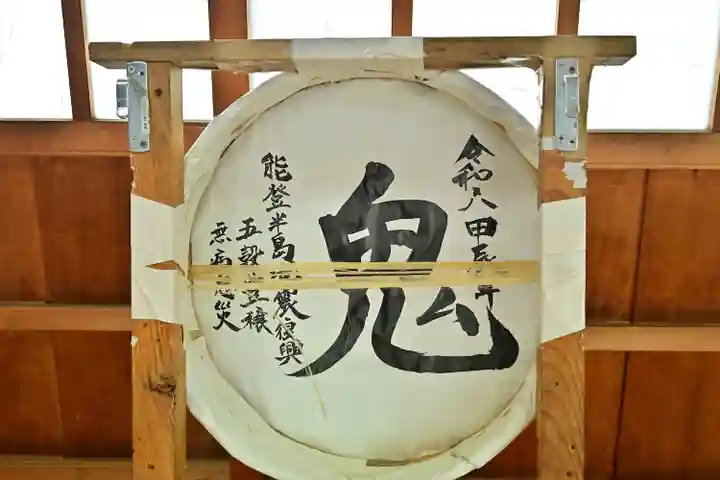 令和六甲辰年
鬼
能登半島農復興
五穀豊穣
無病息災